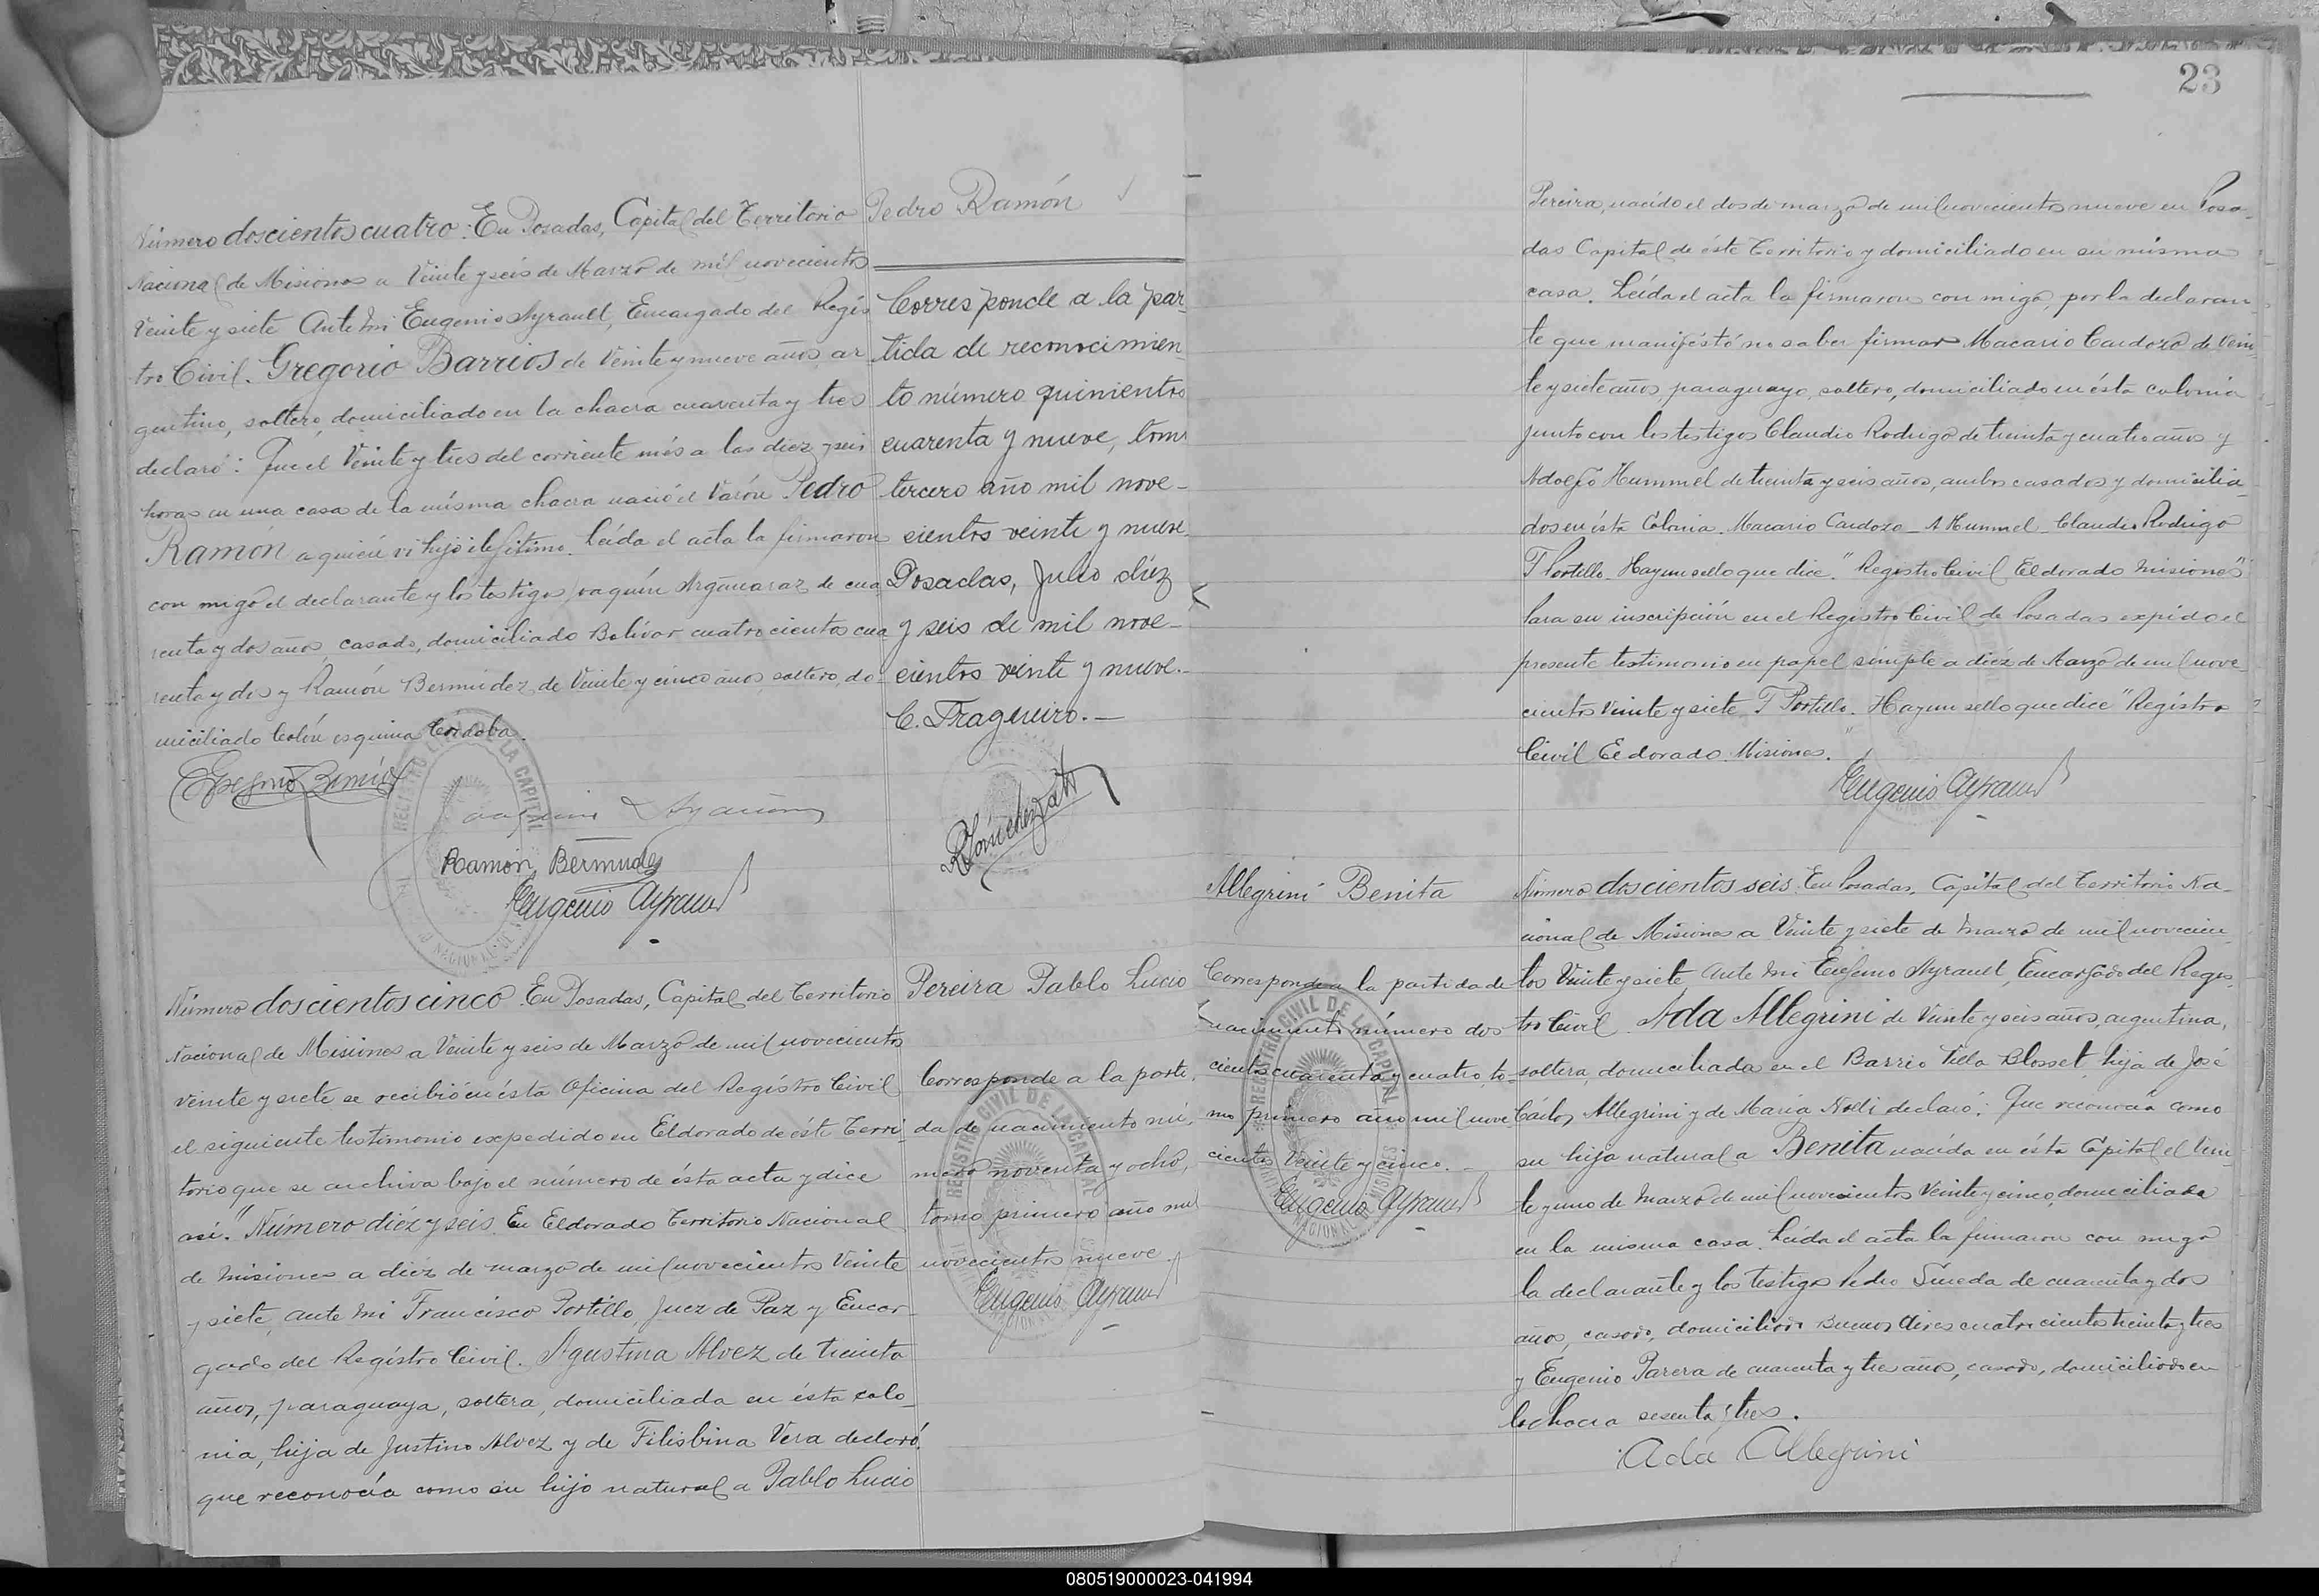 Número doscientos cuatro: En Posadas, Capital del Territorio
Nacional de Misiones a Veinte y seis de Marzo de mil novecientos
Veinte y siete Ante mi Eugenio Ayrault, Encargado del Regis
tro Civil. Gregorio Barrios de Veinte y nueve años, ar
gentino, soltero, domiciliado en la chacra cuarenta y tres
declaró: Que el Veinte y tres del corriente més a las diez y seis
horas en una casa de la misma chacra nació el Varón Pedro
Ramón a quien vi hijo ilegítimo. Leída el acta la firmaron
con migo el declarante y los testigos Joaquín Argañaraz de cua
renta y dos años, casado, domiciliado Bolívar cuatrocientos cua
renta y dos y Ramón Bermúdez de Veinte y cinco años, soltero, do
miciliado Colón esquina Córdoba.
Ramón Bermudez
Eugenio Ayrault
Pedro Ramón
Corresponde a la par
tida de reconocimien
to número quinientos
cuarenta y nueve, tomo
tercero año mil nove-
cientos veinte y nueve
Posadas, Julio diéz
y seis de mil nove-
cientos veinte y nueve.-
C. Fragueiro.-
Número doscientos cinco. En Posadas, Capital del Territorio
Nacional de Misiones a Veinte y seis de Marzo de mil novecientos
veinte y siete se recibió en ésta Oficina del Registro Civil
el siguiente testimonio expedido en Eldorado de éste Terri
torio que se archiva bajo el número de ésta acta y dice
así: "Número diéz y seis. En Eldorado Territorio Nacional
de Misiones a diéz de marzo de mil novecientos Veinte
y siete, ante mi Francisco Portillo, Juez de Paz y Encar-
gado del Registro Civil. Agustina Alvez de treinta
años, paraguaya, soltera, domiciliada en ésta colo
nia, hija de Justino Alvez y de Filisbina Vera declaró
que reconocía como su hijo natural a Pablo Lucio
Pereira Pablo Lucio
Corresponde a la parti
da de nacimiento nú-
mero noventa y ocho,
tomo primero año mil
novecientos nueve.
Eugenio Ayrault
REGISTRO CIVIL DE LA CAPITAL
23
Pereira, nacido el dos de marzo de mil novecientos nueve en Posa-
das Capital de éste Territorio y domiciliado en su misma
casa. Leída el acta la firmaron con migo, por la declaran
te que manifestó no saber firmar Macario Cardozo de Vein-
te y siete años, paraguayo, soltero, domiciliado en ésta colonia
junto con los testigos Claudio Rodrigo de treinta y cuatro años y
Adolfo Hummel de treinta y seis años, ambos casados y domicilia-
dos en ésta Colonia. Macario Cardozo - A Hummel - Claudio Rodrigo
F Portillo. Hay un sello que dice "Registro Civil Eldorado Misiones"
Para su inscripción en el Registro Civil de Posadas expido el
presente testimonio en papel simple a diéz de Marzo de mil nove
cientos Veinte y siete. F Portillo. Hay un sello que dice "Registro
Civil Eldorado Misiones."
Eugenio Ayrault
Allegrini Benita
Corresponde a la partida de
nacimiento número dos
cientos cuarenta y cuatro, to-
mo primero año mil nove
cientos Veinte y cinco.-
Eugenio Ayrault
REGISTRO CIVIL DE LA CAPITAL
Número doscientos seis. En Posadas, Capital del Territorio Na-
cional de Misiones a Veinte y siete de marzo de mil novecien
tos Veinte y siete, Ante mi Eugenio Ayrault, Encargado del Regis-
tro Civil. Ada Allegrini de Veinte y seis años, argentina,
soltera, domiciliada en el Barrio Villa Blosset hija de José
Carlos Allegrini y de María Nolli declaró: Que reconocía como
su hija natural a Benita nacida en ésta Capital el Vein-
te y uno de marzo de mil novecientos Veinte y cinco, domiciliada
en la misma casa. Leída el acta la firmaron con migo
la declarante y los testigos Pedro de cuarenta y dos
años, casado, domiciliado Buenos Aires cuatrocientos treinta y tres
y Eugenio Parera de cuarenta y tres años, casado, domiciliado en
la chacra sesenta y tres.
Ada Allegrini
080519000023-041994